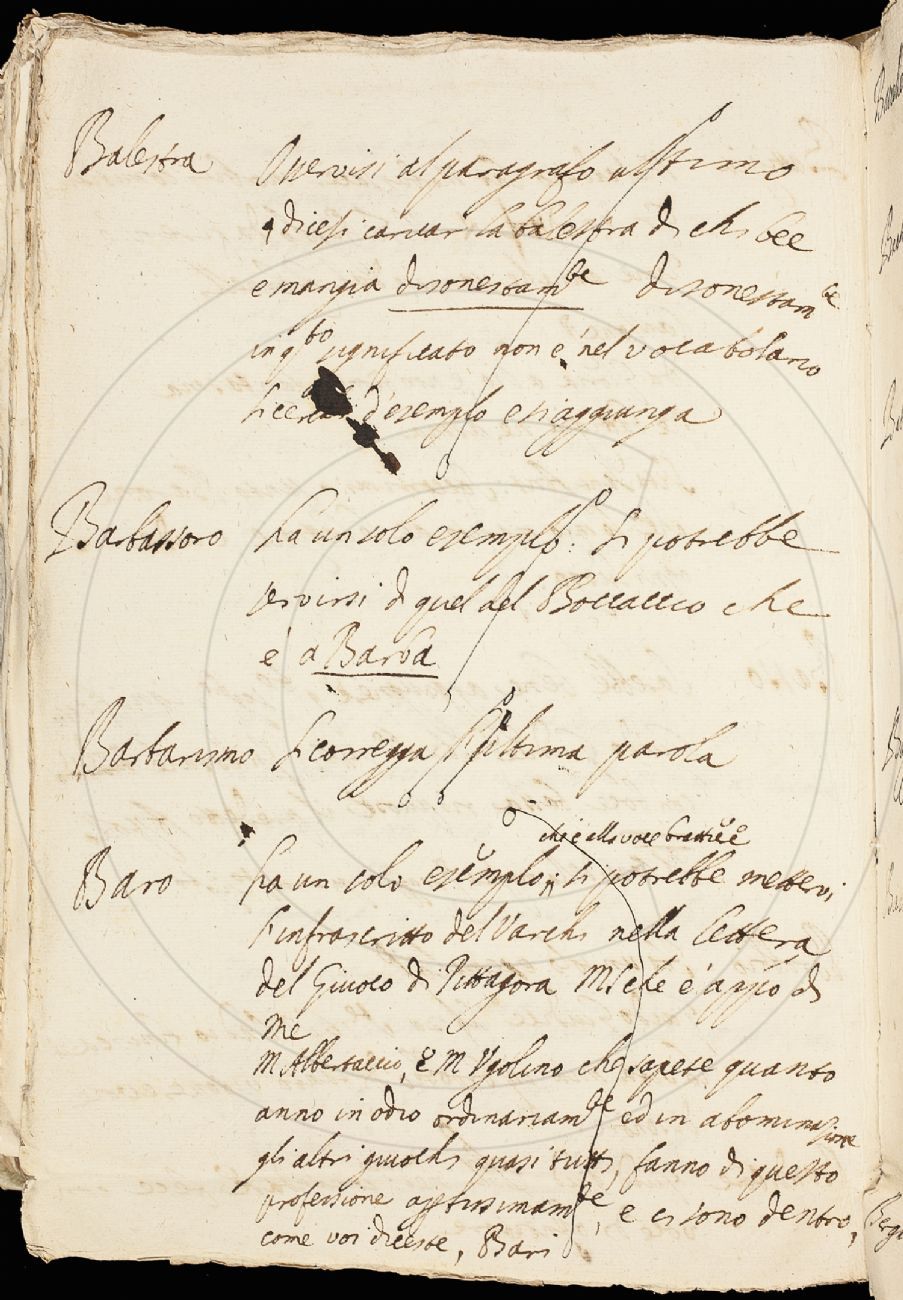 Balestra Osservisi al paragrafo ultimo
dicesi caricar la balestra di chi bee
e mangia disonestam.te Disonestam.te
in q.to significato non è nel vocabolario
si cerchi d'esemplo e si aggiunga
Barbassoro ha un solo esemplo: si potrebbe
servirsi di quel del Boccaccio che
è a Barba
Barbarismo si corregga l'ultima parola
che è alla voce
Baro ha un solo esemplo; si potrebbe mettervi
l'infrascritto del Varchi nella lettera
del Giuoco di Pittagora MS che è appo di
me
M Albertaccio, e M Ugolino che sapete quanto
anno in odio ordinariam.te ed in abominazione
gli altri giuochi quasi tutti, fanno di questo
professione apertissimam.te, e ci sono dentro,
come voi diceste, Bari